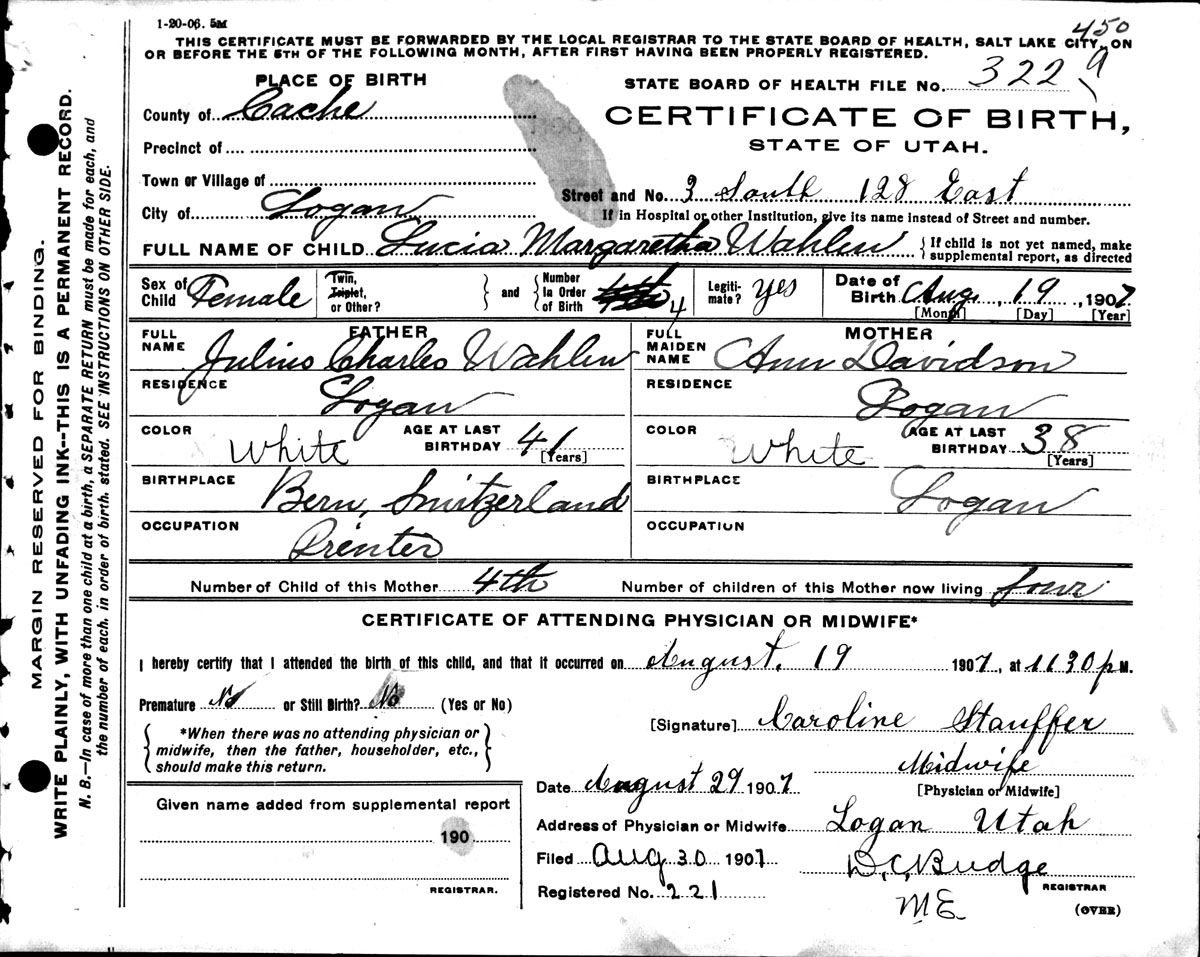 1-20-06. 5M
450
THIS CERTIFICATE MUST BE FORWARDED BY THE LOCAL REGISTRAR TO THE STATE BOARD OF HEALTH, SALT LAKE CITY, ON
OR BEFORE THE 5TH OF THE FOLLOWING MONTH, AFTER FIRST HAVING BEEN PROPERLY REGISTERED.
PLACE OF BIRTH
STATE BOARD OF HEALTH FILE No. 322 9
County of Cache
CERTIFICATE OF BIRTH,
STATE OF UTAH.
Precinct of
Town or Village of
Street and No. 3 South 128 East
City of Logan
If in Hospital or other Institution, give its name instead of Street and number.
FULL NAME OF CHILD Lucia Margaretha Wahlen { If child is not yet named, make supplemental report, as directed
Sex of Child Female Twin, Triplet, or Other? } and { Number In Order of Birth 4th 4 Legiti-mate? Yes Date of Birth Aug, 19, 1907
[Month] [Day] [Year]
FATHER
MOTHER
FULL NAME Julius Charles Wahlen
FULL MAIDEN NAME Ann Davidson
RESIDENCE Logan
RESIDENCE Logan
COLOR White AGE AT LAST BIRTHDAY 41 [Years]
COLOR White AGE AT LAST BIRTHDAY 38 [Years]
BIRTHPLACE Bern, Switzerland
BIRTHPLACE Logan
OCCUPATION Printer
OCCUPATION
Number of Child of this Mother 4th Number of children of this Mother now living four
CERTIFICATE OF ATTENDING PHYSICIAN OR MIDWIFE*
I hereby certify that I attended the birth of this child, and that it occurred on August, 19 1907, at 1130 p M.
Premature No or Still Birth? No (Yes or No)
[Signature] Caroline Stauffer
*When there was no attending physician or
midwife, then the father, householder, etc.,
should make this return.
Midwife
[Physician or Midwife]
Date August 29 1907
Given name added from supplemental report
190
REGISTRAR.
Address of Physician or Midwife Logan Utah
Filed Aug 30 1907 D.C. Budge
REGISTRAR
Registered No. 221
ME
(OVER)
MARGIN RESERVED FOR BINDING.
WRITE PLAINLY, WITH UNFADING INK--THIS IS A PERMANENT RECORD.
N. B.—In case of more than one child at a birth, a SEPARATE RETURN must be made for each, and
the number of each, in order of birth, stated. SEE INSTRUCTIONS ON OTHER SIDE.